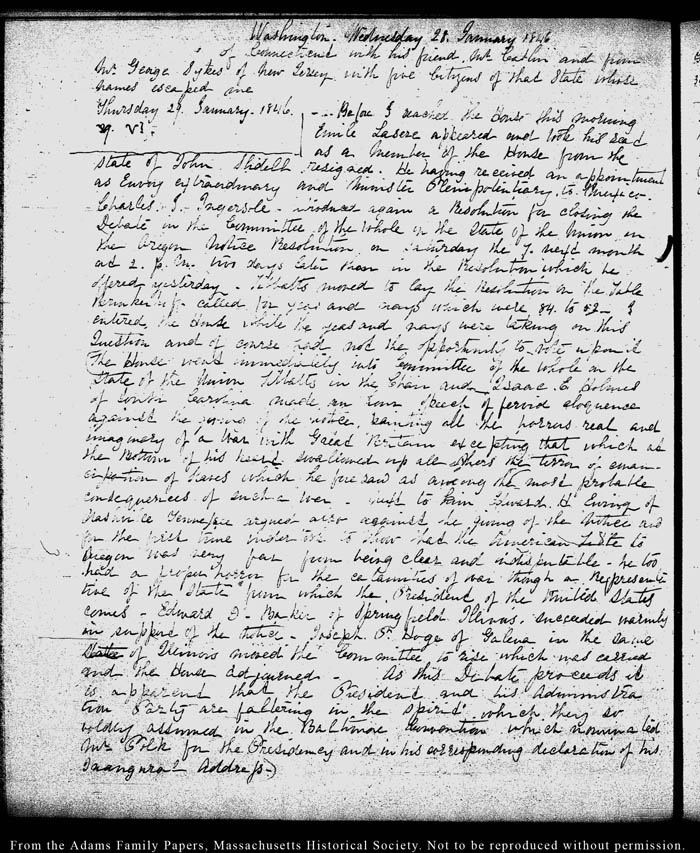 Washington. Wednesday 28. January 1846
of Connecticut with his friend Mr. Catlin and from
Mr. George Sykes of New Jersey, with five Citizens of that State whose
names escaped me
Thursday 29. January. 1846.
29. VI.
Before I reached the House this morning
Emile Lasere appeared and took his seat
as a member of the House from the
State of John Slidell resigned. He having received an appointment
as Envoy extraordinary and Minister Plenipotentiary to Mexico.
Charles J. Ingersole again a Resolution for closing the
Debate in the Committee of the whole in the State of the Union, on
the Oregon Notice Resolution, on Saturday the 7. next month
at 2. P.M. two days later than in the Resolution which he
offered yesterday. Tibbatts moved to lay the Resolution on the Table
called for yeas and nays which were 84. to 52 I
entered the House while the yeas and nays were taking on this
Question and of course had not the opportunity to vote upon it
(The House went immediately into Committee of the whole on the
State of the Union, Tibbatts in the Chair and Isaac. E Holmes
of South Carolina made an hour speech of fervid eloquence
against the giving of the notice, painting all the horrors real and
imaginary of a War with Great Britain excepting that which at
the bottom of his heart swallowed up all others the terror of eman-
cipation of slaves which he foresaw as among the most probable
consequences of such a war. next to him Edward. H Ewing of
Nashville Tennessee argued also against the giving of the Notice and
for the first time undertook to show that the American title to
Oregon was very far from being clear and indisputable - he too
had a proper horror for the calamities of war though a Representa-
tive of the State from which the President of the United States
comes - Edward D. Baker of Springfield Illinois, succeeded warmly
in support of the Notice. Joseph. P. Hoge of Galena in the same
State of Illinois moved the Committee to rise which was carried
and the House adjourned. - As this Debate proceeds it
is apparent that the President and his Administra
tion Party are faltering in the spirit which they so
boldly assumed in the Baltimore Convention which nominated
Mr Polk for the Presidency and in his corresponding declaration of his
Inaugural Address.)
From the Adams Family Papers, Massachusetts Historical Society. Not to be reproduced without permission.